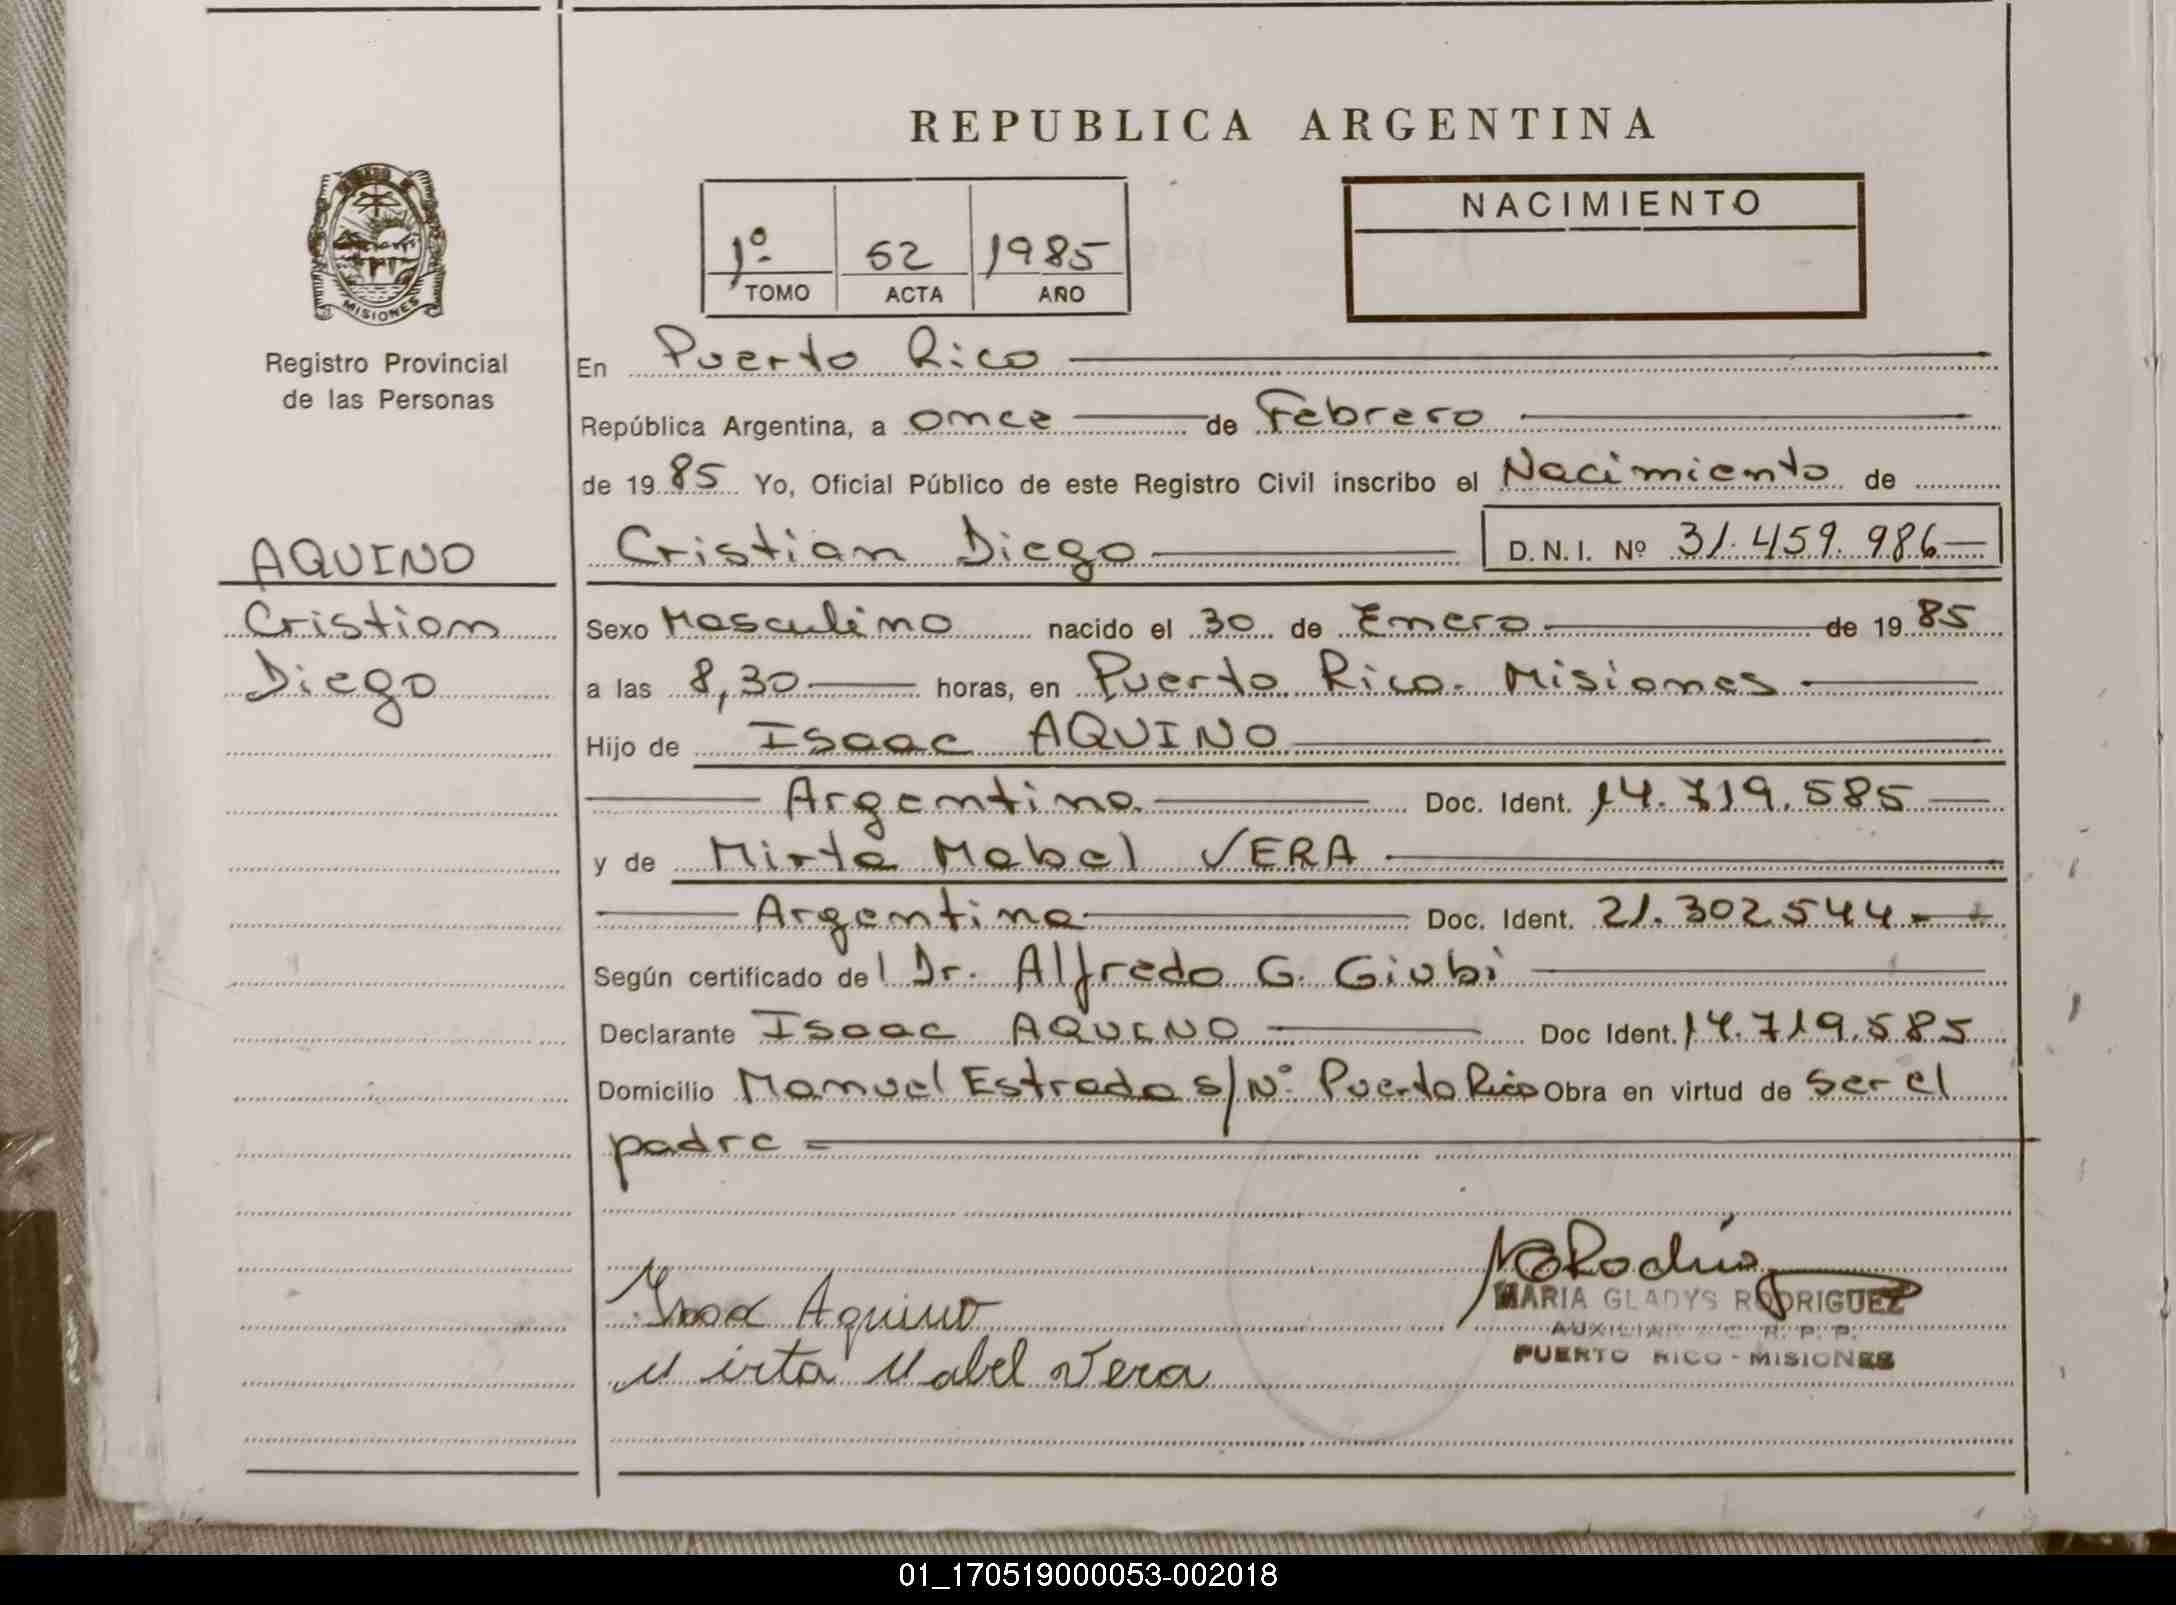 REPUBLICA ARGENTINA
MISIONES
Registro Provincial
de las Personas
1º 52 1985
TOMO ACTA AÑO
NACIMIENTO
AQUINO
Cristian
Diego
En Puerto Rico
República Argentina, a once de Febrero
de 1985 Yo, Oficial Público de este Registro Civil inscribo el Nacimiento de
Cristian Diego D.N.I. Nº 31.459.986
Sexo Masculino nacido el 30 de Enero de 1985
a las 8,30 horas, en Puerto Rico. Misiones
Hijo de Isaac AQUINO
Argentino Doc. Ident. 14.719.585
y de Mirta Mabel VERA
Argentina Doc. Ident. 21.302.544
Según certificado del Dr. Alfredo G. Giubi
Declarante Isaac AQUINO Doc Ident. 14.719.585
Domicilio Manuel Estrada S/Nº Puerto Rico Obra en virtud de ser el
padre
Isaac Aquino
Mirta Mabel Vera
MARIA GLADYS RODRIGUEZ
AUXILIAR R. P. P.
PUERTO RICO - MISIONES
01_170519000053-002018